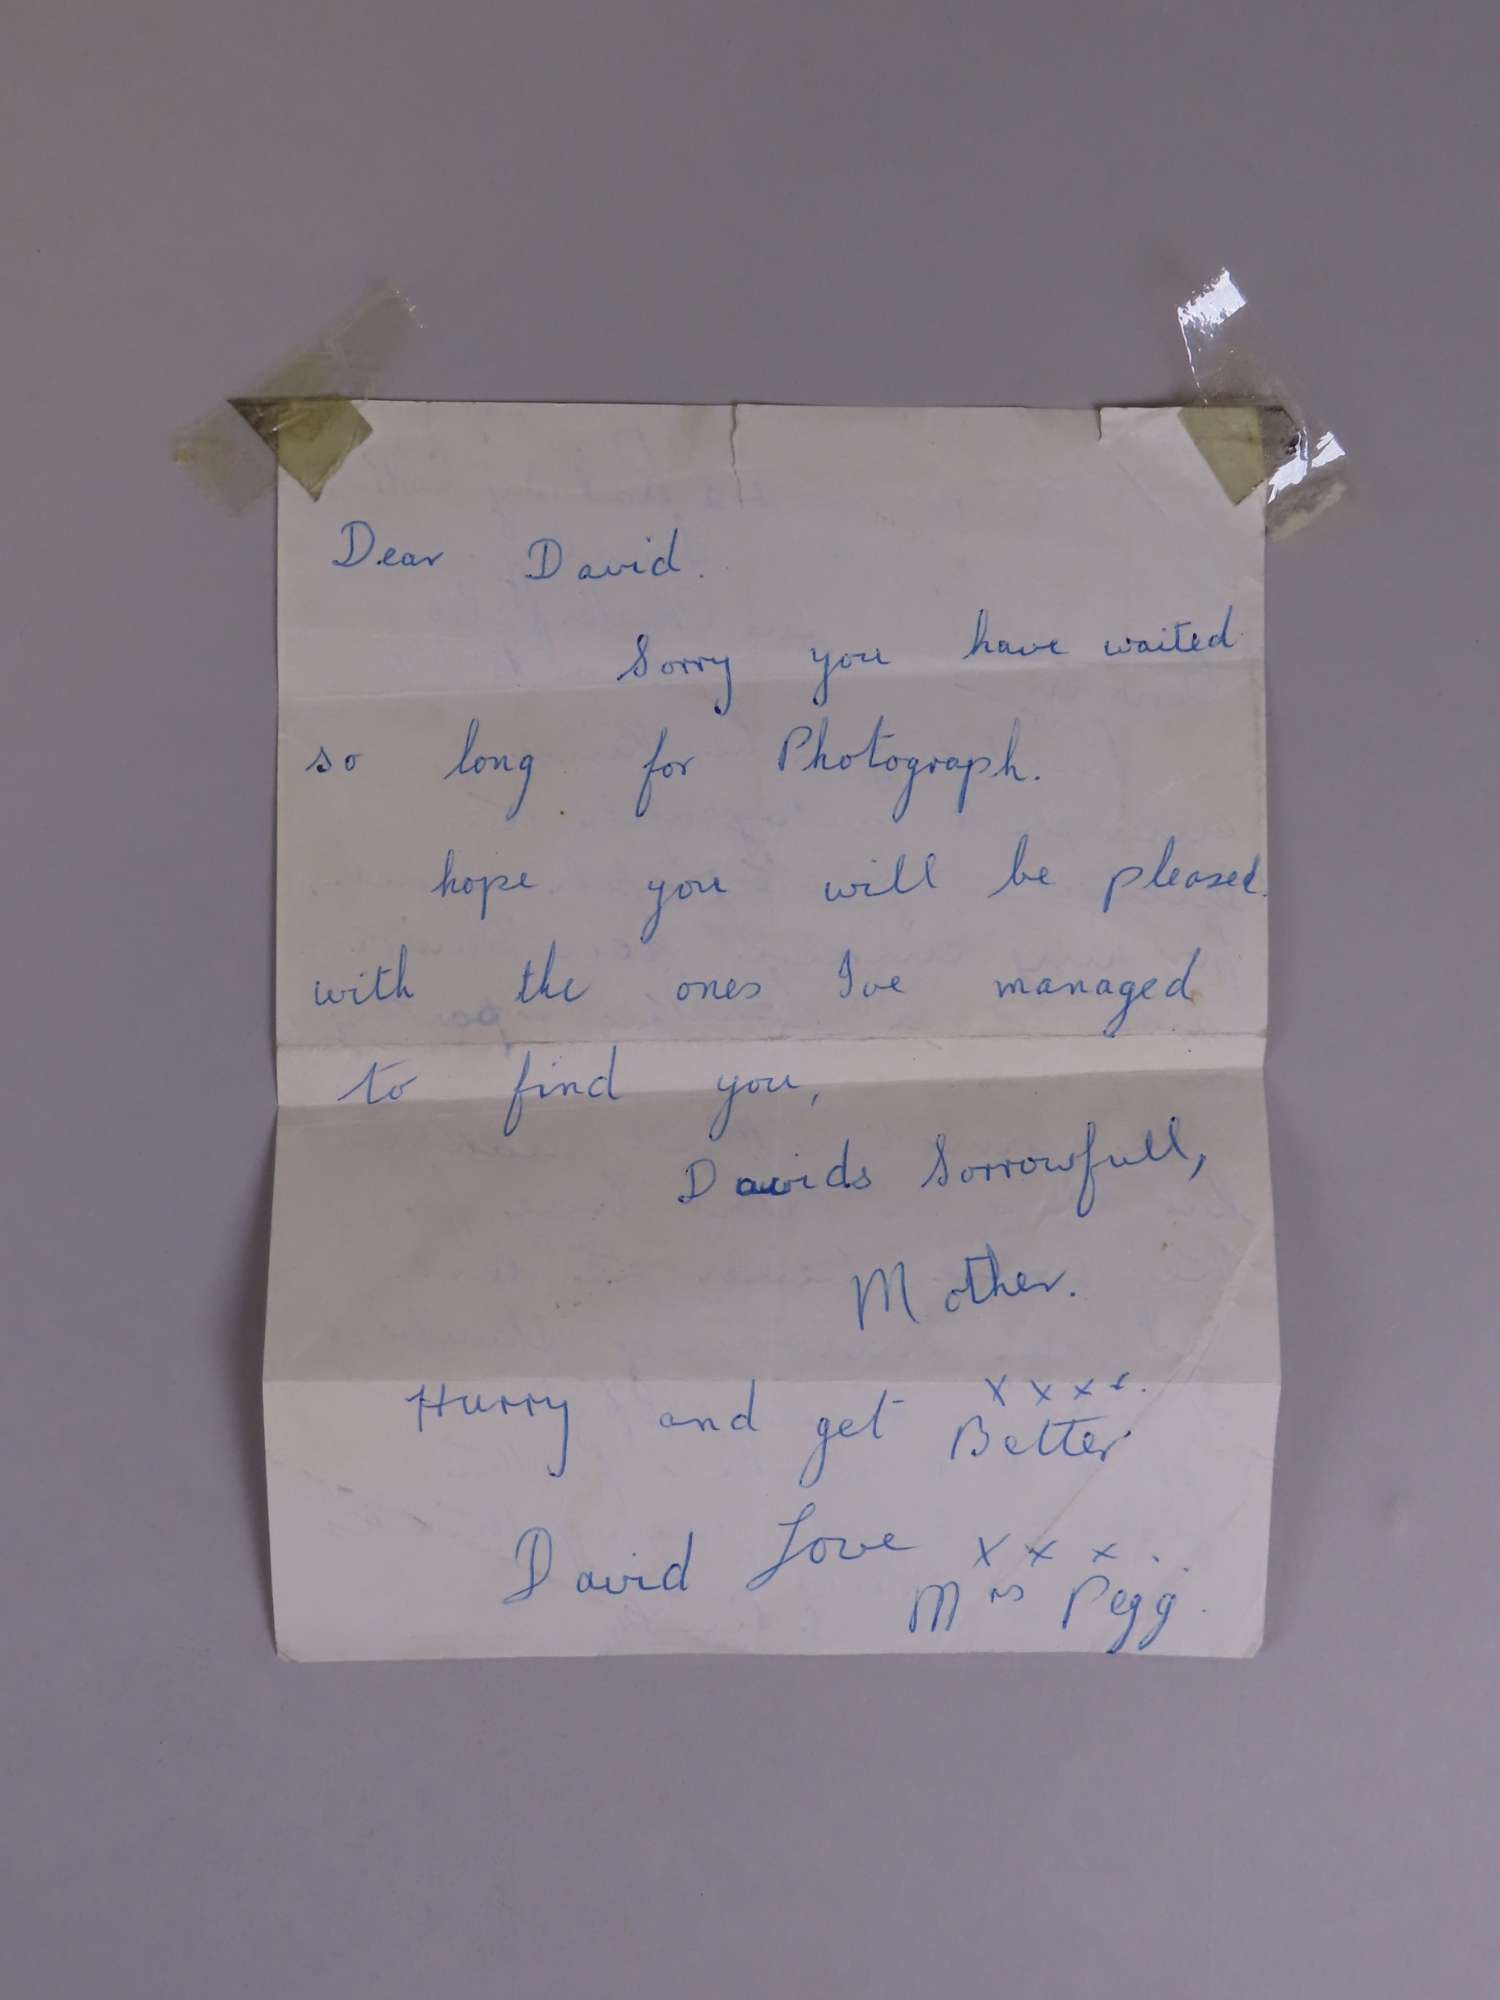 Dear David.
Sorry you have waited
so long for Photograph.
hope you will be pleased.
with the ones I've managed
to find you,
Davids Sorrowfull,
Mother.
x x x x.
Hurry and get Better
David Love x x x .
Mrs Pegg.